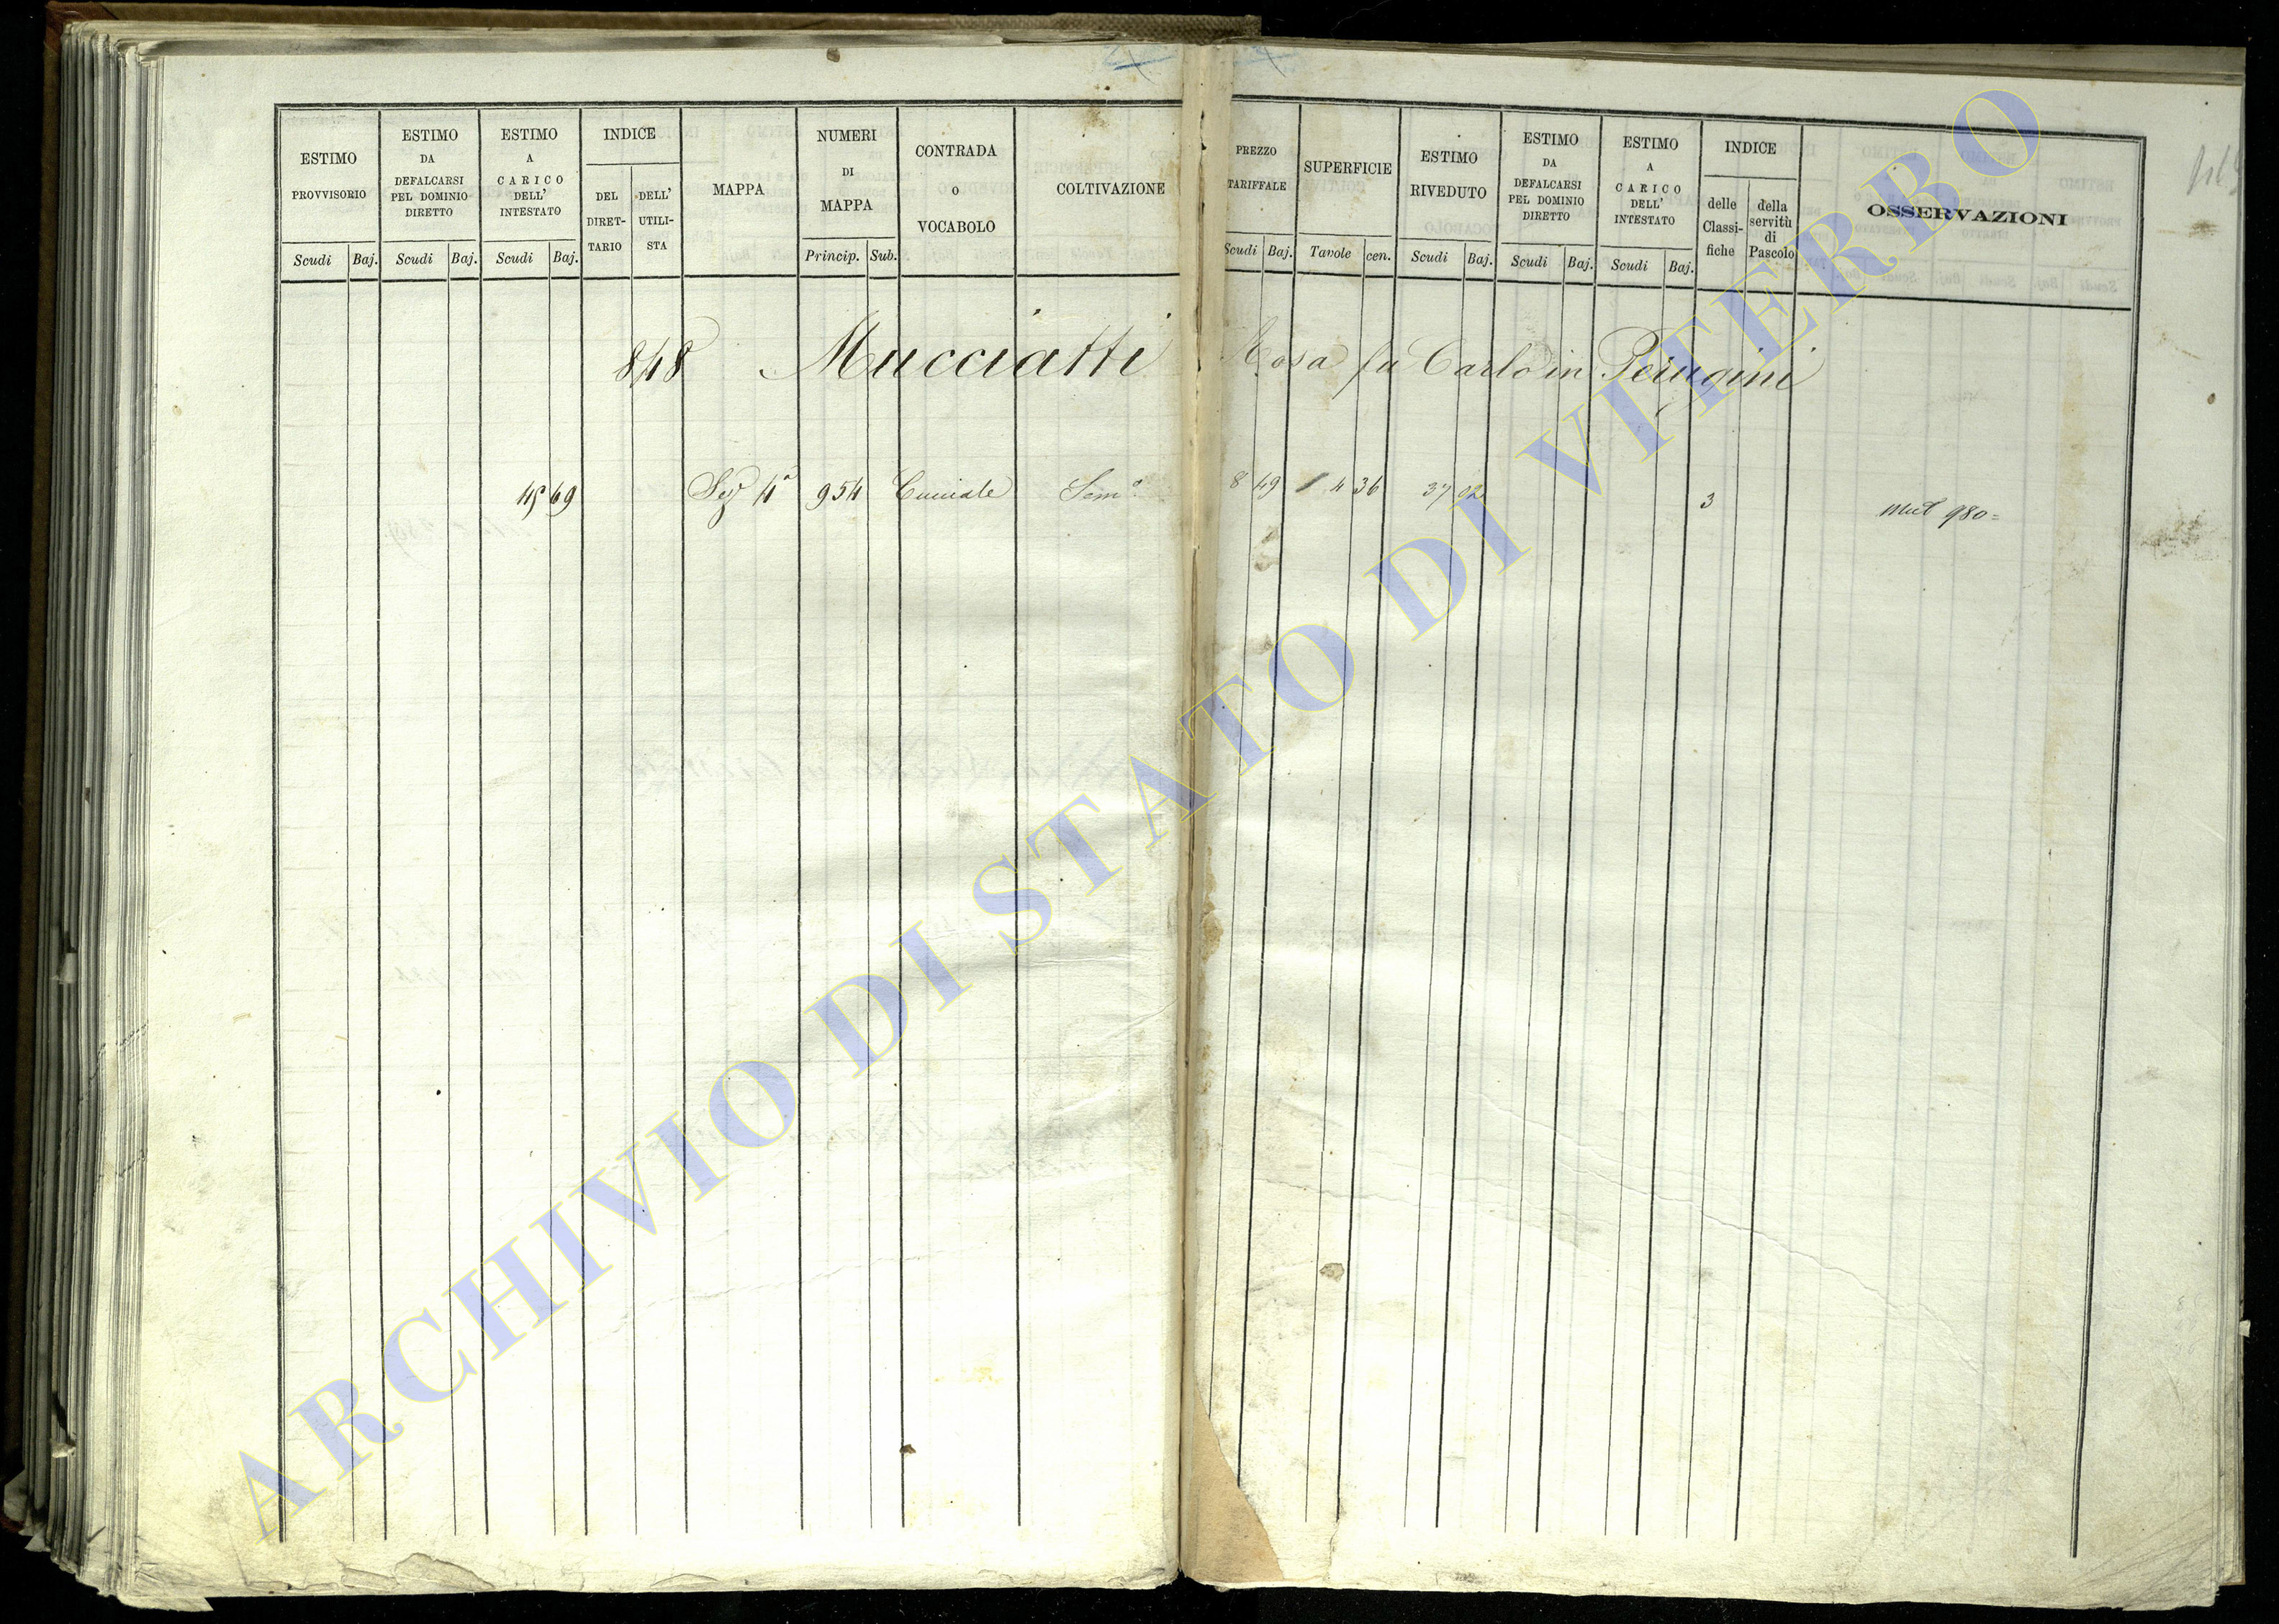 ESTIMO PROVVISORIO
Scudi Baj.
ESTIMO DA DEFALCARSI PEL DOMINIO DIRETTO
Scudi Baj.
ESTIMO A CARICO DELL' INTESTATO
Scudi Baj.
INDICE
DEL DIRET-TARIO
DELL' UTILI-STA
MAPPA
NUMERI DI MAPPA
Princip. Sub.
CONTRADA O VOCABOLO
COLTIVAZIONE
PREZZO TARIFFALE
Scudi Baj.
SUPERFICIE
Tavole cen.
ESTIMO RIVEDUTO
Scudi Baj.
ESTIMO DA DEFALCARSI PEL DOMINIO DIRETTO
Scudi Baj.
ESTIMO A CARICO DELL' INTESTATO
Scudi Baj.
INDICE
delle Classi-fiche
della servitù di Pascolo
OSSERVAZIONI
848 Mucciatti Rosa fu Carlo in Perugini
45 69 Sez 4ª 954 Semº 8 49 4 36 37 02 3 Mut 980=
ARCHIVIO DI STATO DI VITERBO